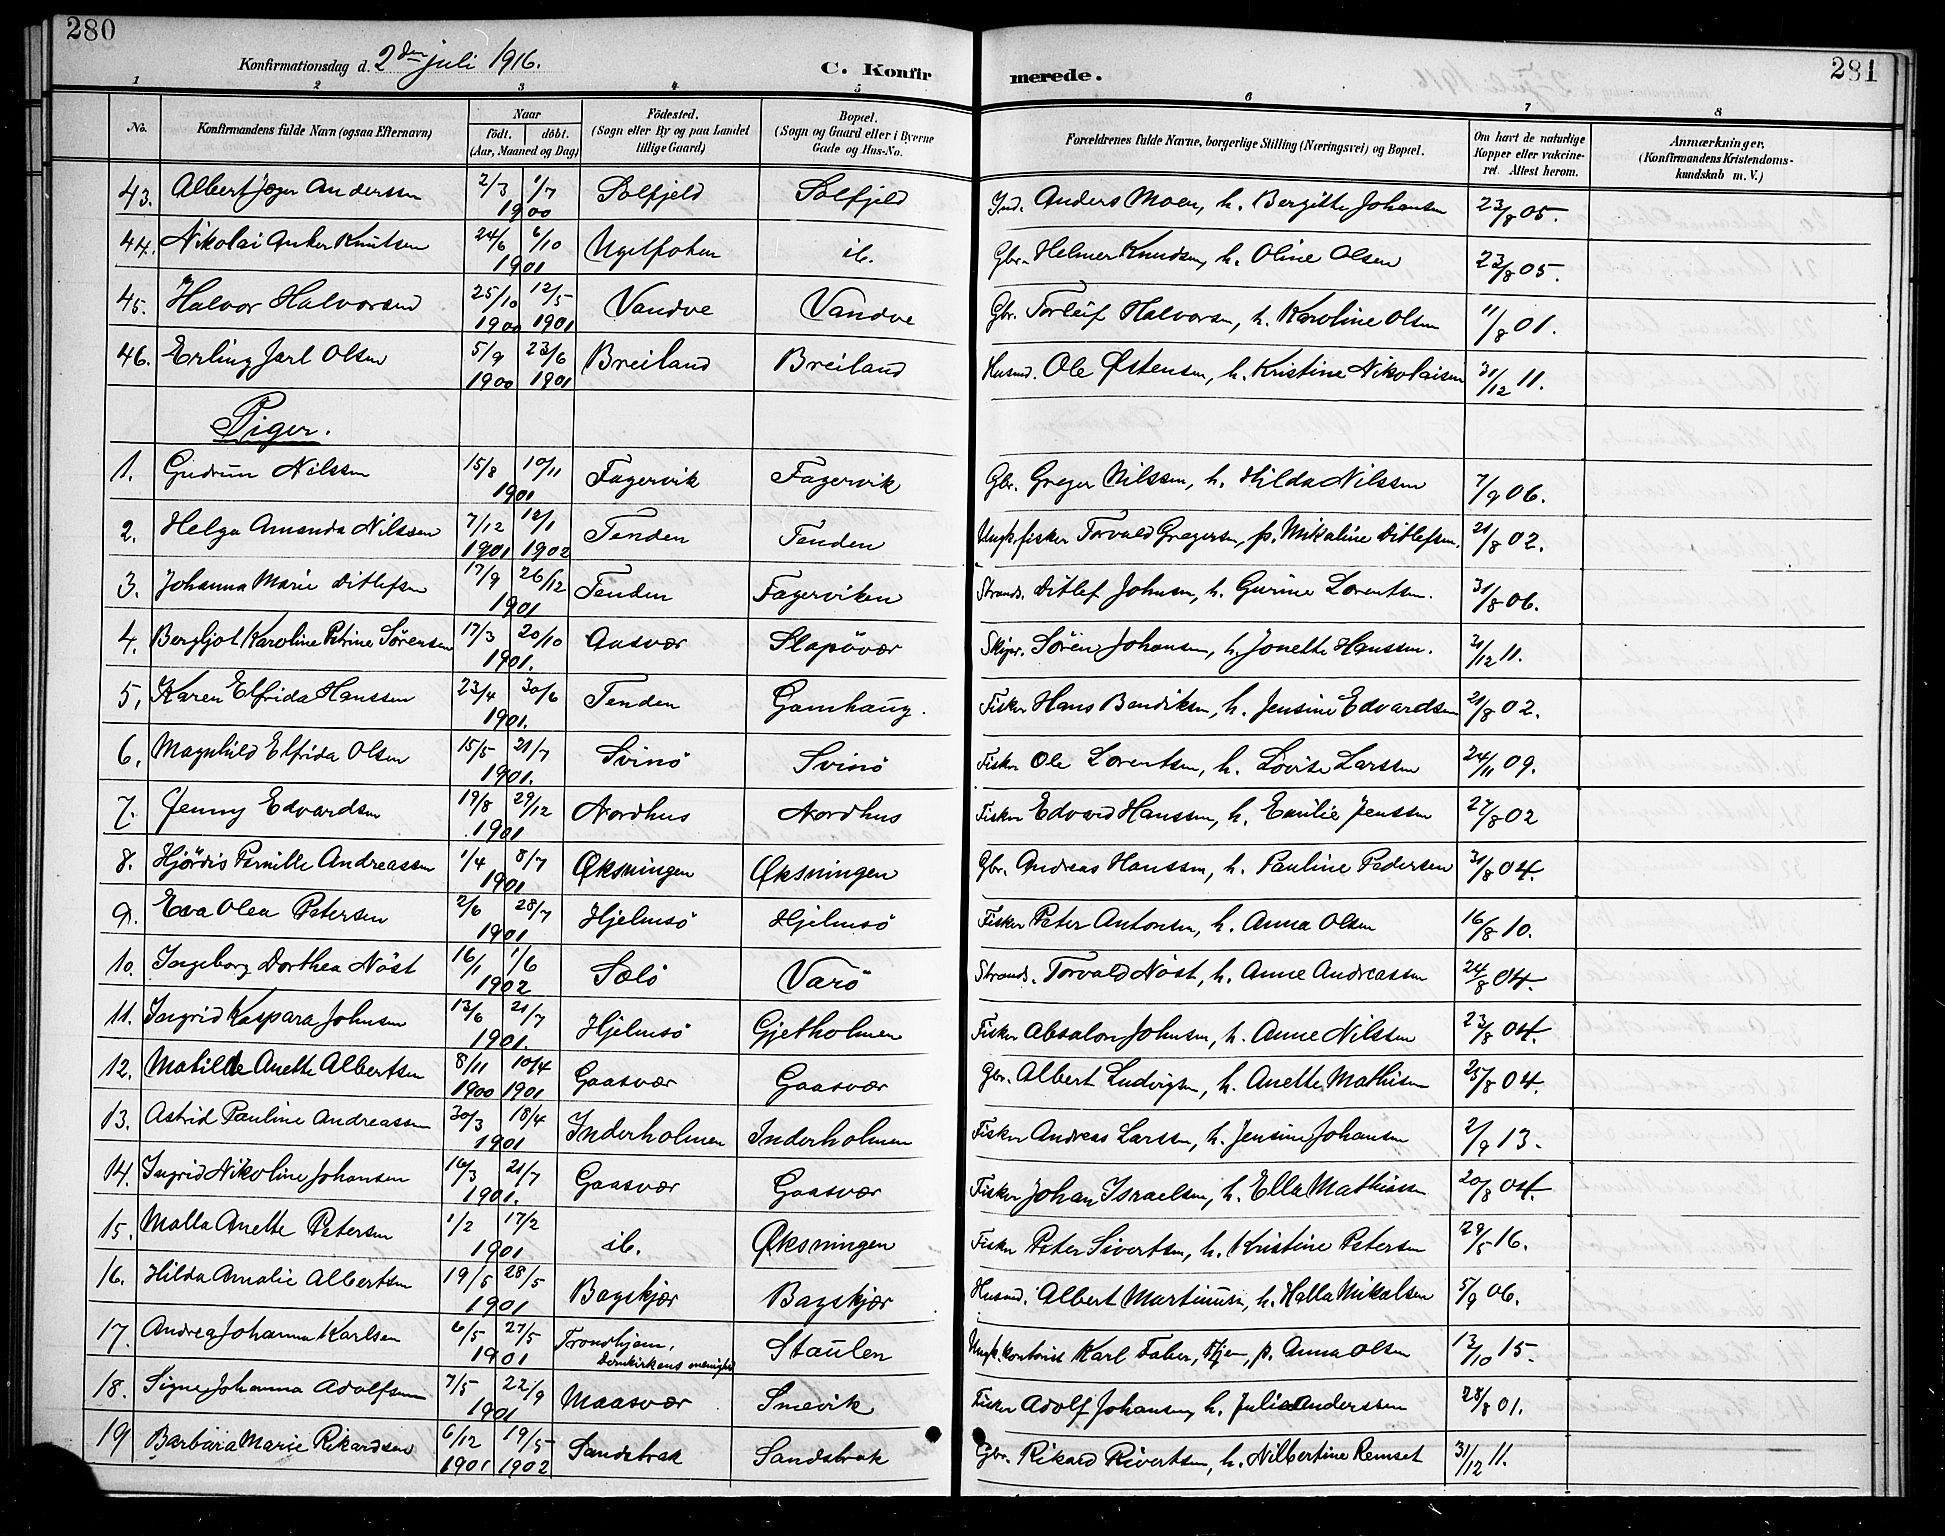 280
281
Konfirmationsdag d. 2den juli 1916.
C. Konfirmerede.
1 2 3 4 5 6 7 8
No.
Konfirmandens fulde Navn (ogsaa Efternavn)
Naar
født. døbt.
(Aar, Maaned og Dag)
Födested.
(Sogn eller By og paa Landet
tillige Gaard)
Bopæl.
(Sogn og Gaard eller i Byerne
Gade og Hus-No.
Forældrenes fulde Navne, borgerlige Stilling (Næringsvei) og Bopæl.
Om havt de naturlige
Kopper eller vakcine-
ret. Attest herom.
Anmærkninger.
(Konfirmandens Kristendoms-
kundskab m. V.)
43. Albert Jøger Anderssen 2/3 1/7 1900 Solfjeld Solfjeld Ind. Anders Moen, h. Bergitte Johansen 23/8 05.
44. Nikolai Anker Knutsen 24/6 6/10 1901 ib. Gbr. Helmer Knudsen, h. Oline Olsen 23/8 05.
45. Halvor Halvorsen 25/10 1900 12/5 1901 Vandve Vandve Gbr. Torleif Halvorsen, h. Karoline Olsen 11/8 01.
46. Erling Jarl Olsen 5/9 1900 23/6 1901 Breiland Breiland Husmd. Ole Østensen, h. Kristine Nikolaisen 31/12 11.
Piger.
1. Gudrun Nilssen 15/8 10/11 1901 Fagervik Fagervik Gbr. Greger Nilssen, h. Hilda Nilssen 7/9 06.
2. Helga Amanda Nilssen 7/12 1901 12/1 1902 Tenden Tenden Ungk. fisker Torvald Gregersen, p. Mikaline Ditlefsen. 21/8 02.
3. Johanna Marie Ditlefsen 17/9 26/12 1901 Tenden Fagerviken Strands. Ditlef Johnsen, h. Gurine Lorentsen. 31/8 06.
4. Bergljot Karoline Petrine Sørensen 17/3 20/10 1901. Aasvær Slapövær Skipr. Søren Johansen, h. Jonette Hanssen. 31/12 11.
5. Karen Elfrida Hanssen 23/4 30/6 1901. Tenden Gamhaug. Fisker Hans Bendiksen, h. Jensine Edvardsen 21/8 02.
6. Magnhild Elfrida Olsen 15/5 21/7 1901. Svinö Svinö Fisker Ole Lorentsen, h. Lovise Larssen 24/11 09.
7. Jenny Edvardsen 19/8 29/12 1901 Nordhus Nordhus Fisker Edvard Hanssen, h. Emilie Jenssen 27/8 02
8. Hjørdis Pernille Andreassen 1/4 8/7 1901 Øksningen Øksningen Gbr. Andreas Hanssen, h. Pauline Pedersen 31/8 04.
9. Eva Olea Petersen 2/6 28/7 1901 Hjelmsö Hjelmsö Fisker Peter Antonsen, h. Anna Olsen 16/8 10.
10. Ingeborg Dorthea Nöst 16/1 1/6 1902 Sælö Varö Strands. Torvald Nöst, h. Anne Andreassen 24/8 04.
11. Ingrid Kaspara Johnsen 13/6 21/7 1901. Hjelmsö Gjetholmen Fisker Absalon Johnsen, h. Anne Nilssen 23/8 04.
12. Matilde Anette Albertsen 8/11 1900 10/4 1901 Gaasvær Gaasvær Gbr. Albert Ludvigsen, h. Anette Mathisen 25/8 04.
13. Astrid Pauline Andreassen 30/3 18/4 1901 Inderholmen Inderholmen Fisker Andreas Larssen, h. Jensine Johansen 2/9 13.
14. Ingrid Nikoline Johansen 16/3 21/7 1901. Gaasvær Gaasvær Fisker Johan Israelsen, h. Ella Mathiassen 20/8 04.
15. Malla Anette Petersen 1/2 17/2 1901 ib. Øksningen Fisker Peter Sivertsen, h. Kristine Petersen 29/5 16.
16. Hilda Amalie Albertsen 19/5 28/5 1901 Bagskjær Bagskjær Husmd. Albert Martinusen, h. Halla Mikalsen 5/9 06.
17. Andrea Johanna Karlsen 6/5 27/5 1901 Trondhjem, Domkirkens menighed Staulen Ungk. kontorist Karl Faber, Thjem, p. Anna Olsen 13/10 15.
18. Signe Johanna Adolfsen 7/5 22/9 1901 Maasvær Smevik Fisker Adolf Johansen, h. Julie Anderssen 28/8 01.
19 Barbara Marie Rikardsen 6/12 1901 19/5 1902 Sandstrak Sandstrak Gbr. Rikard Sivertsen, h. Nilbertine Remset 31/12 11.